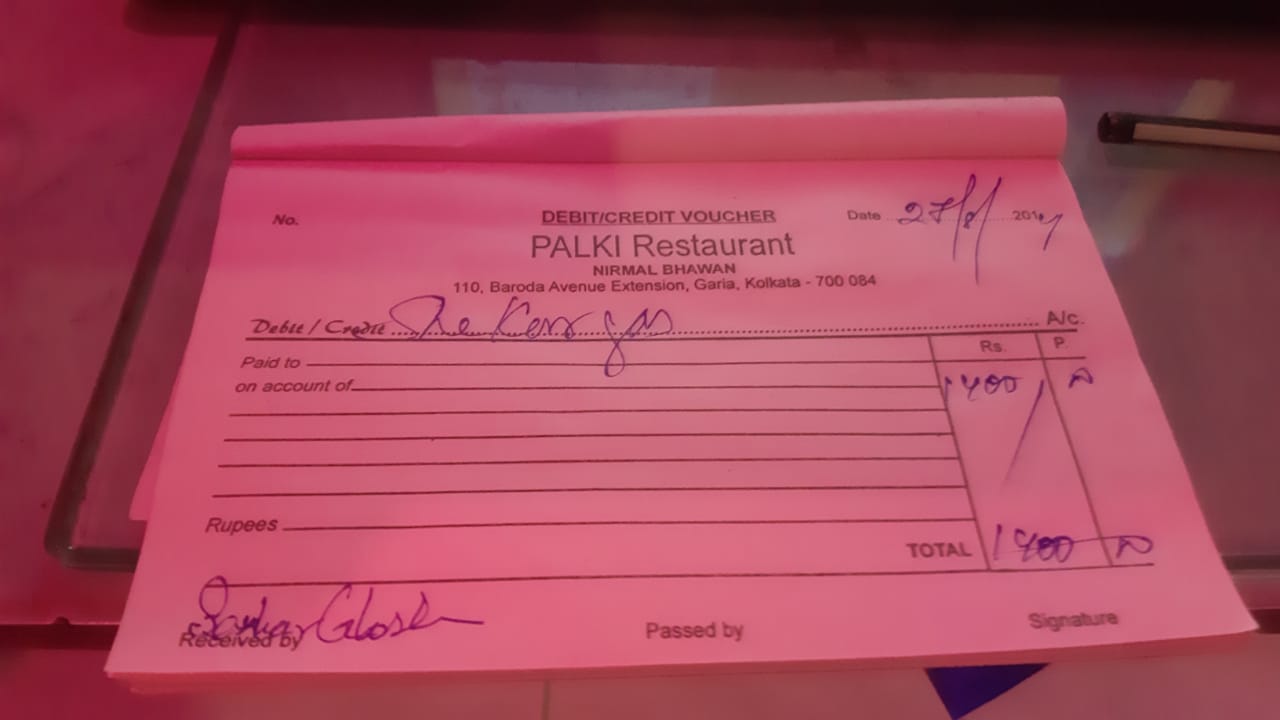 No. DEBIT/CREDIT VOUCHER Date 27/8/ 201
PALKI Restaurant
NIRMAL BHAWAN
110, Baroda Avenue Extension, Garia, Kolkata - 700 084
Debit / Credit A/c.
Rs. P.
Paid to
on account of 1400/
Rupees
TOTAL 1400
Received by Passed by Signature